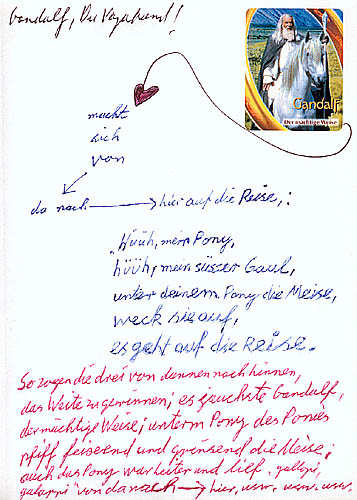 Gandalf, Du Vagabund!
Gandalf
Der mächtige Weise
macht
sich
von
da nach → hier auf die Reise,:
"Hüüh, mein Pony,
hüüh, mein süsser Gaul,
unter deinem Pony die Meise,
weck sie auf,
es geht auf die Reise.
So zogen die drei von dannen nach hinnen,
das Weite zu gewinnen; es fauchste Gandalf,
der mächtige Weise; unterm Pony des Ponies
pfiff feixend und grinsend die Meise;
auch das Pony war heiter und lief, galopi,
galappi von da nach → hier, usw. usw. usw.